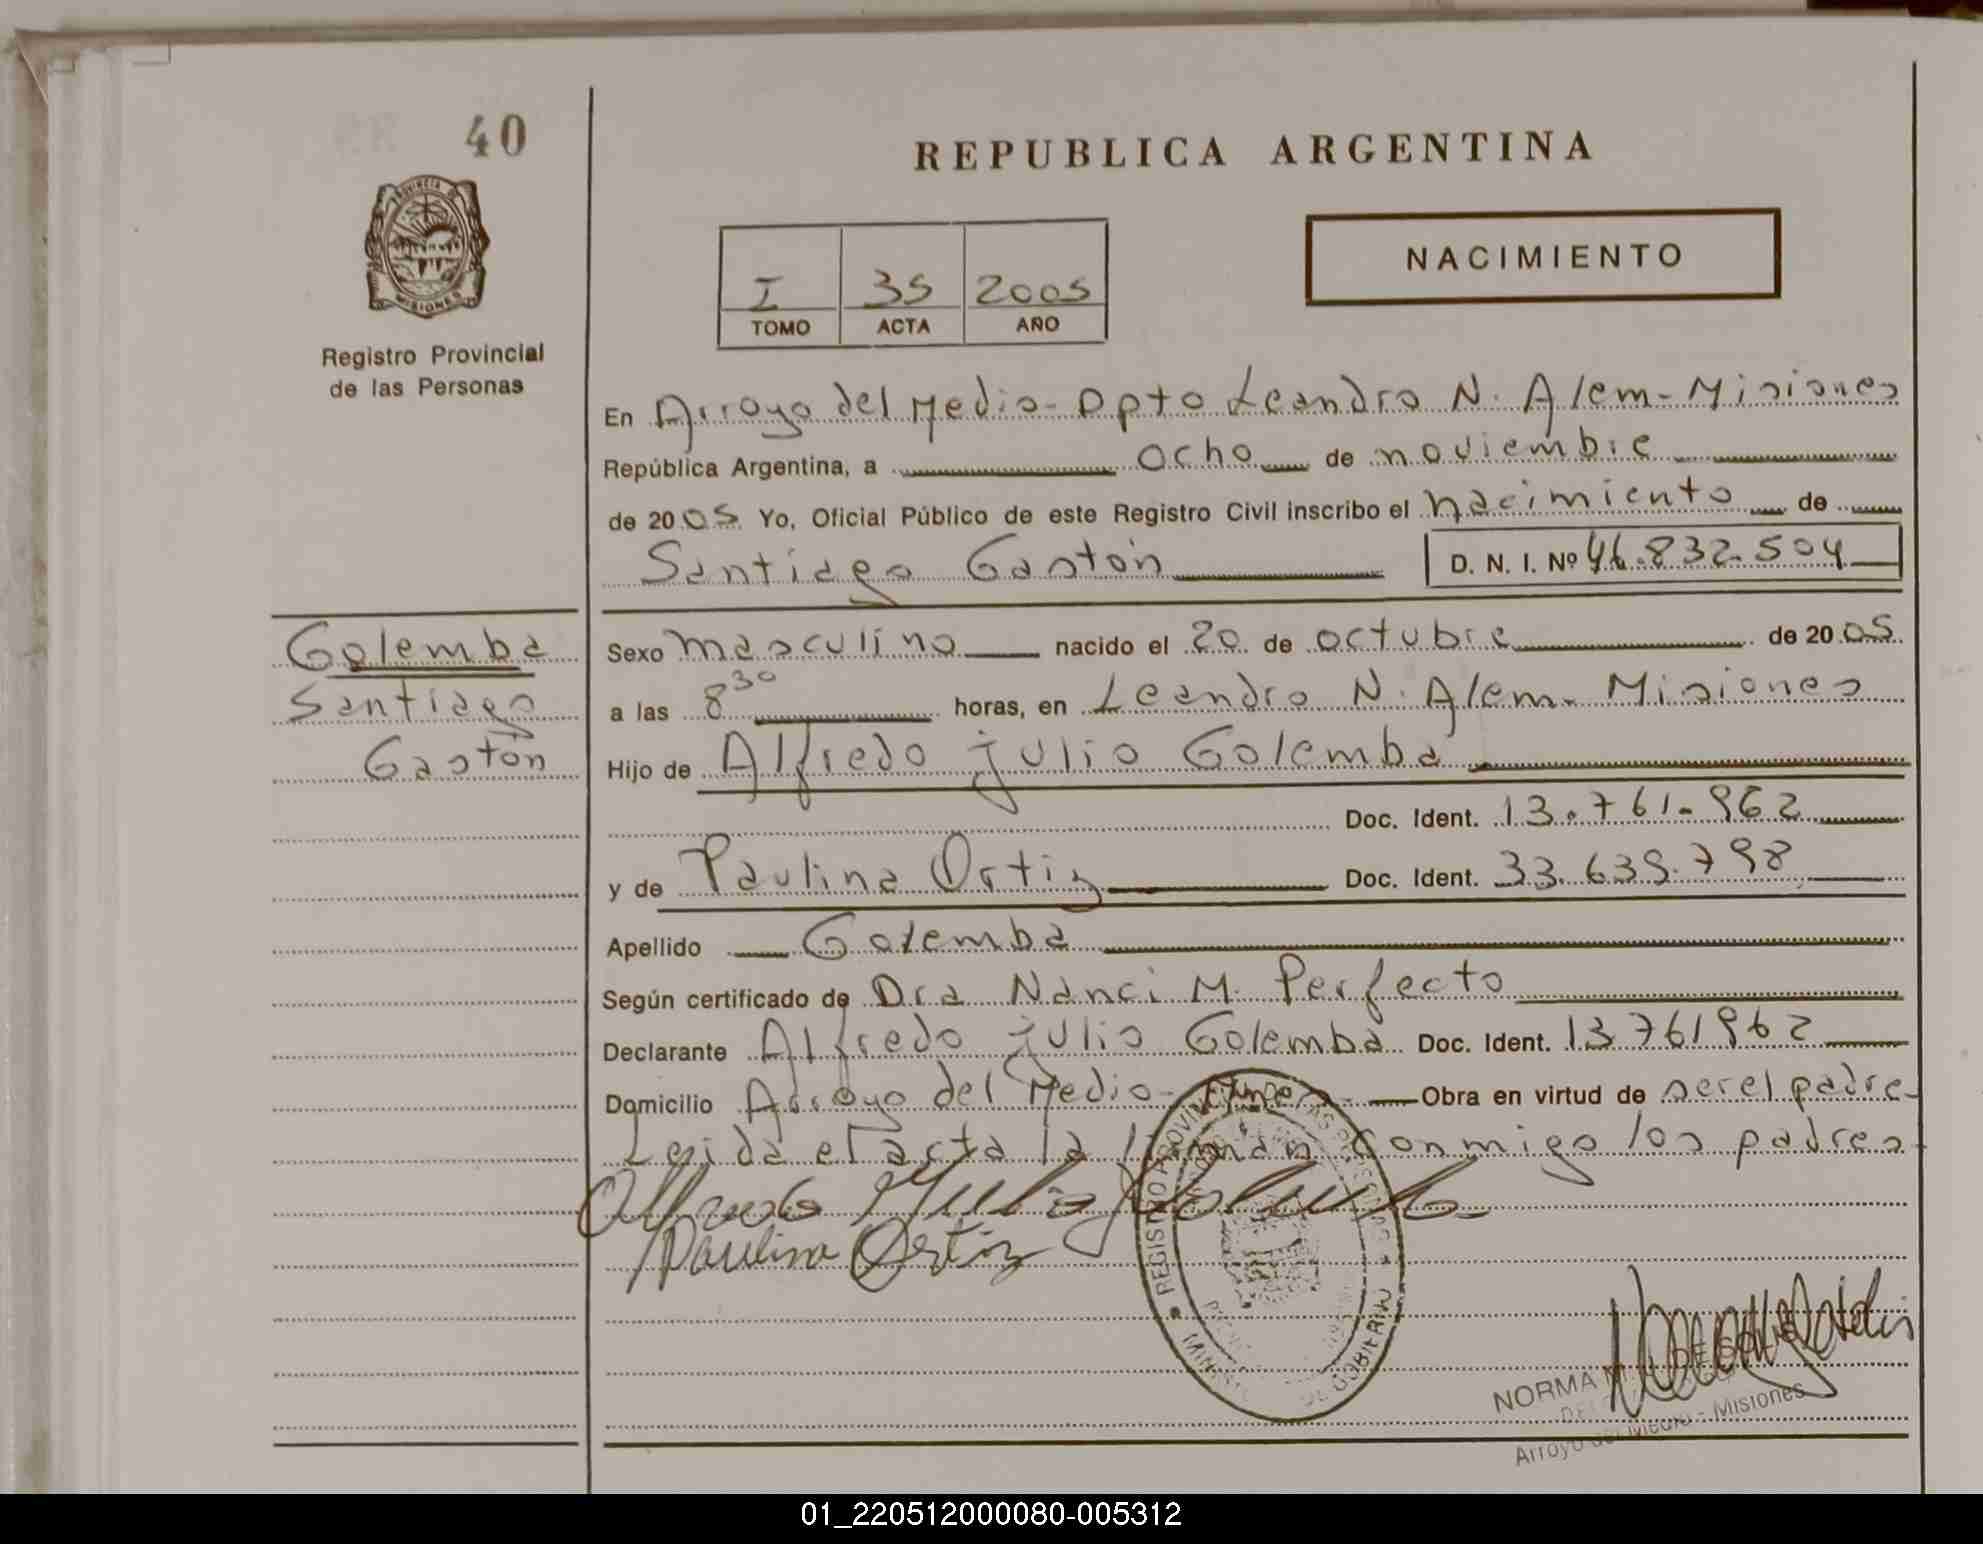 40
REPUBLICA ARGENTINA
PROVINCIA DE
MISIONES
Registro Provincial
de las Personas
NACIMIENTO
I 39 2005
TOMO ACTA AÑO
En Arroyo del Medio - Dpto Leandro N. Alem - Misiones
República Argentina, a ocho de noviembre
de 2005 Yo, Oficial Público de este Registro Civil inscribo el nacimiento de
Santiago Gastón D. N. I. Nº 46.832.504
Golemba
Santiago
Gastón
Sexo masculino nacido el 20 de octubre de 2005
a las 8³⁰ horas, en Leandro N. Alem - Misiones
Hijo de Alfredo julio Golemba
Doc. Ident. 13.761.962
y de Paulina Ortiz Doc. Ident. 33.639.798
Apellido Golemba
Según certificado de Dra Nanci M. Perfecto
Declarante Alfredo julio Golemba Doc. Ident. 13761962
Domicilio Arroyo del Medio - Obra en virtud de ser el padre-
Leida el acta la firman conmigo los padres.
Alfredo Julio Golemba
Paulina Ortiz
REGISTRO PROVINCIAL DE LAS PERSONAS
DE GOBIERNO
NORMA
Arroyo del Medio - Misiones
01_220512000080-005312